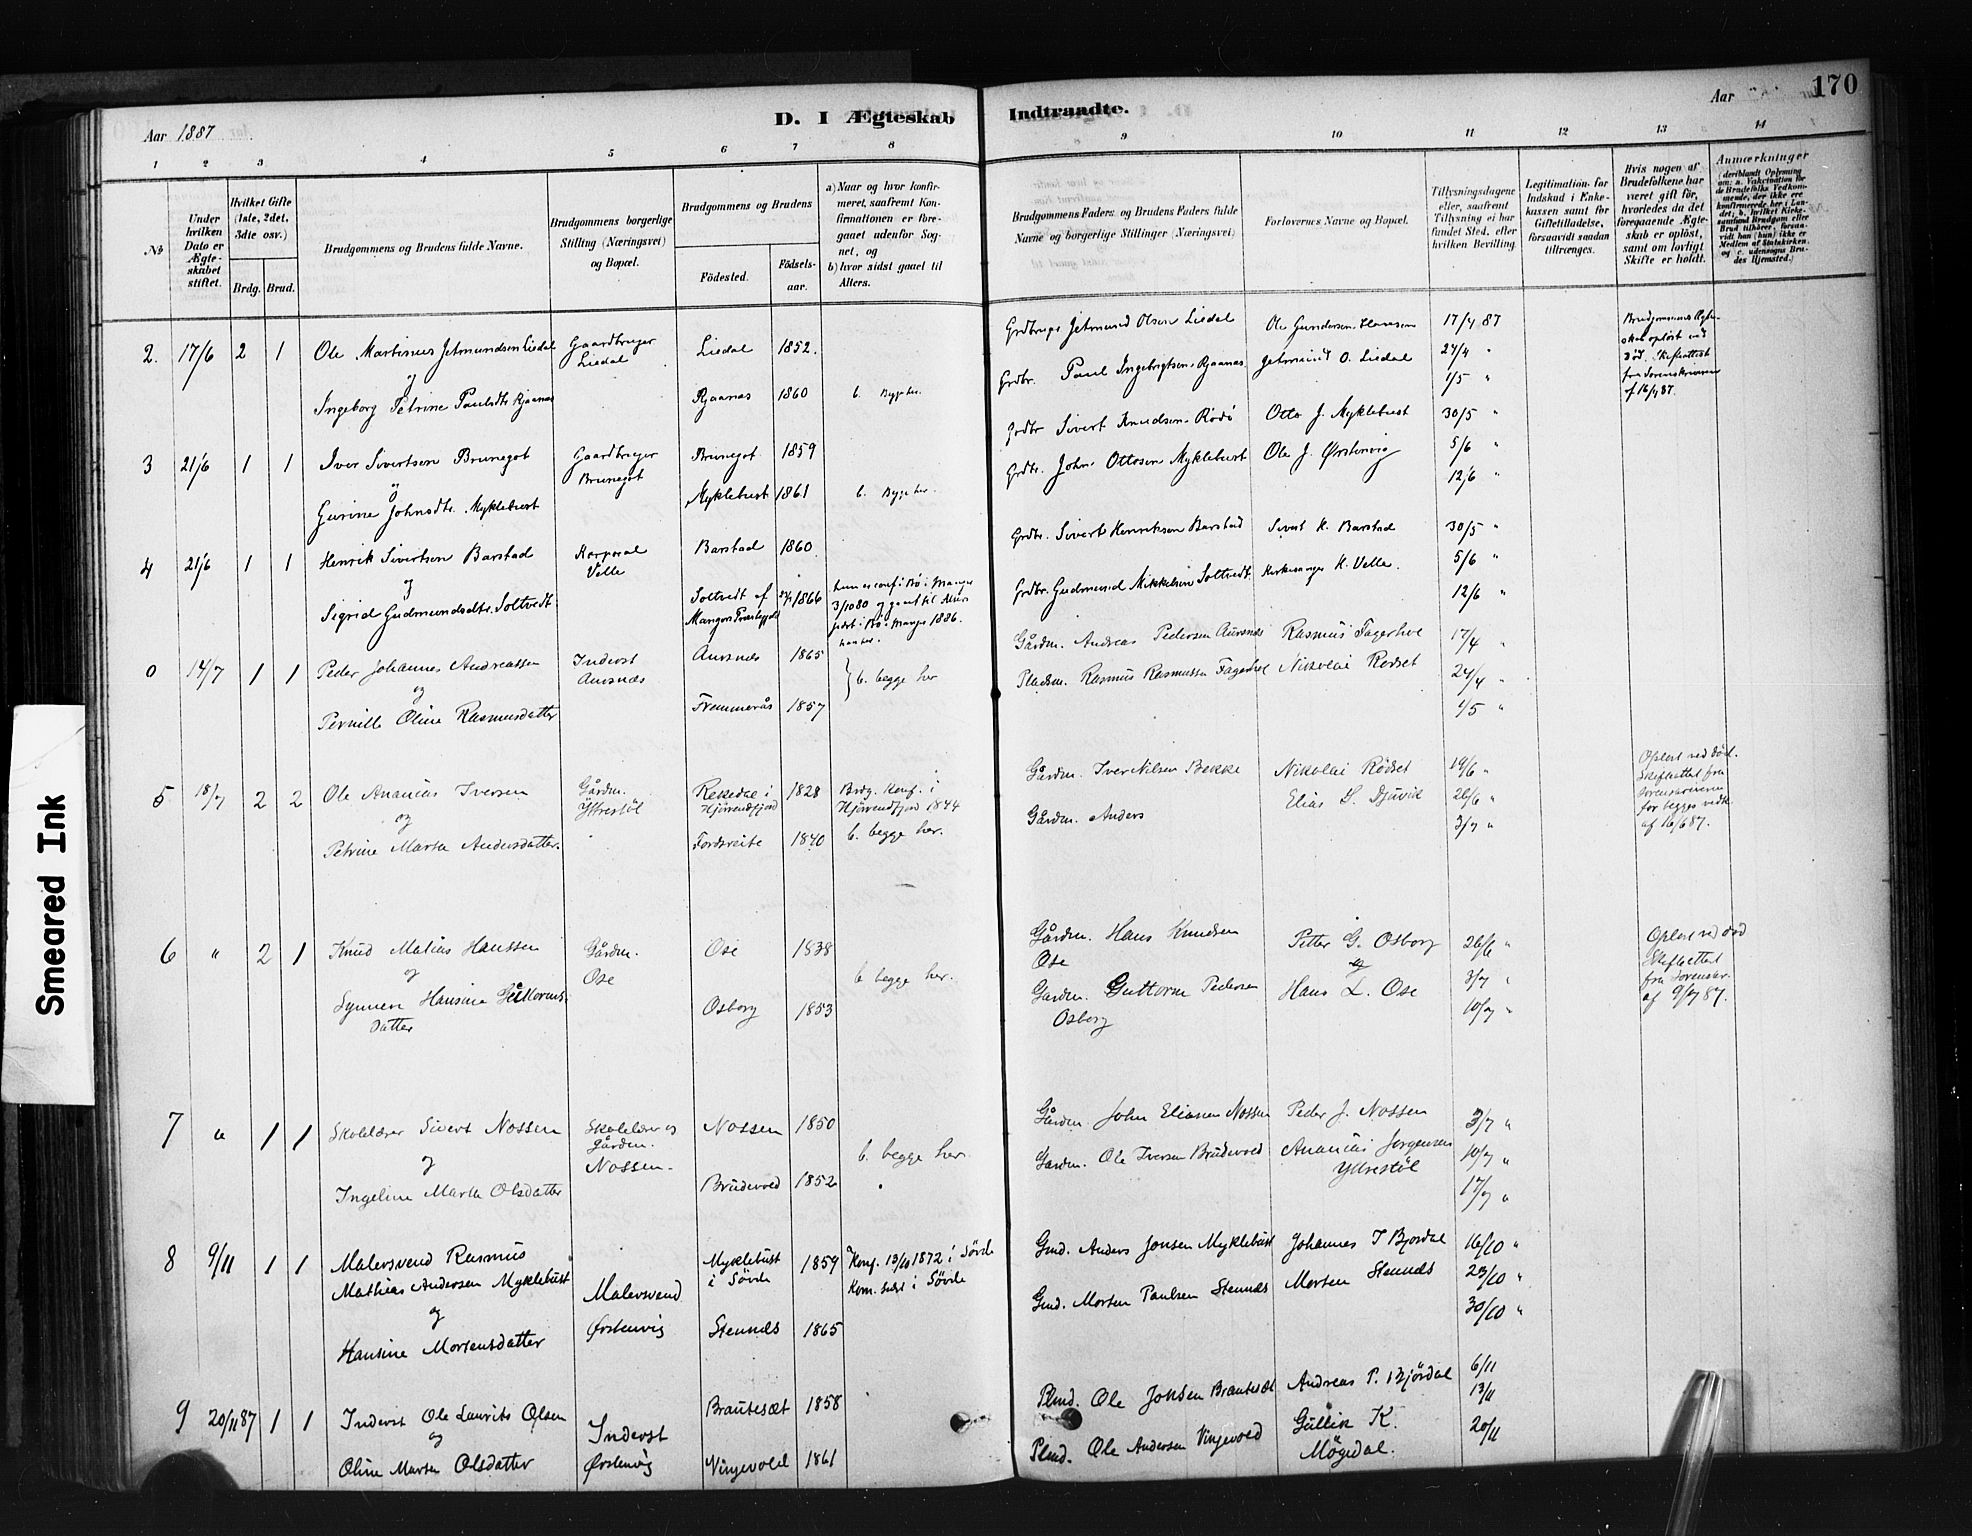 170
Aar 1887
D. I Ægteskab Indtraadte.
Aar
1 2 3 4 5 6 7 8 9 10 11 12 13 14
No
Under hvilken Dato er Ægteskabet stiftet.
Hvilket Gifte (1ste, 2det, 3die osv.)
Brdg. Brud.
Brudgommens og Brudens fulde Navne.
Brudgommens borgerlige Stilling (Næringsvei) og Bopæl.
Brudgommens og Brudens
Födested.
Födselsaar.
a) Naar og hvor konfirmeret, saafremt Konfirmationen er foregaaet udenfor Sognet, og
b) hvor sidst gaaet til Alters.
Brudgommens Faders og Brudens Faders fulde Navne og borgerlige Stillinger (Næringsvei)
Forlovernes Navne og Bopæl.
Tillysningsdagene eller, saafremt Tillysning ei har fundet Sted, efter hvilken Bevilling.
Legitimation for Indskud i Enkekassen samt for Giftetilladelse, forsaavidt saadan tiltrænges.
Hvis nogen af Brudefolkene har været gift før, hvorledes da det foregaaende Ægteskab er oplöst, samt om lovligt Skifte er holdt.
Anmærkninger
2. 17/6 2 1
Ole Martinus Jetmundsen Liedal
og
Ingeborg Petrine Paulsdtr Rjaanes
Gaardbruger
Liedal
Liedal 1852.
Rjaanes 1860
b. Begge her.
Grdbrugr Jetmund Olsen Liedal
Grdbr. Paul Ingebrigtsen Rjaanes
Ole Gundersen Hansen
Jetmund O. Liedal
17/4 87
24/4 "
1/5 "
3 21/6 1 1
Iver Sivertsen Brunegot
og
Gurine Johnsdtr. Myklebust
Gaardbruger
Brunegot
Brunegot 1859
Myklebust 1861
b. Begge her.
Grdbr Sivert Knudsen Rödö
Grdbr. John Ottosen Myklebust
Otto J. Myklebust
Ole J. Ørstenvig
30/5 "
5/6 "
12/6 "
4 21/6 1 1
Henrik Sivertsen Barstad
og
Sigrid Gudmundsdtr. Soltvedt
Korporal
Velle
Barstad 1860.
Soltvedt af
Mangers Præstegjeld 1866
Grdbr. Sivert Henriksen Barstad
Grdbr. Gudmund Mikkelsen Soltvedt
Sivert H. Barstad
Kirkesanger K. Velle
30/5 "
5/6 "
12/6 "
0 14/7 1 1
Peder Johannes Andreassen
og
Pernille Oline Rasmusdatter
Inderst
Aursnæs
Aursnæs 1865
Fremmerås 1857
b. begge her
Gårdm. Andreas Pedersen Aursnæs
Pladsm. Rasmus Rasmussen Fagerhol
Rasmus Fagerhol
Nikolai Rødset
17/4
24/4 "
1/5 "
5 18/7 2 2
Ole Ananias Iversen
og
Petrine Marta Andersdatter.
Gårdm.
Yttrestöl
Rekedal i
Hjörendfjord 1828
Fordsreite 1840
Brdg. konf. i
Hjörendfjord 1844
b. begge her.
Gårdm. Iver Nilsen Bekke
Gårdm. Anders
Nikolai Rödset
Elias S. Djuvik
19/6 "
26/6 "
3/7 "
Oplöst ved död.
Skifteattest fra
Sorenskriveren
for begges vedk.
af 16/6 87.
6 " 2 1
Knud Matias Hanssen
og
Synneve Hansine Guttorms-
datter
Gårdm.
Ose
Ose 1838
Osborg 1853
b begge her.
Gårdm. Hans Knudsen
Ose
Gardm. Guttorm Pedersen
Osborg
Petter G. Osborg
og
Hans L. Ose
26/6 "
3/7 "
10/7 "
Oplöst ved död
Skifteattest
fra Sorenskr.
af 9/7 87.
7 " 1 1
Skolelærer Sivert Nossen
og
Ingeline Marta Olsdatter
Skolelærer og
gårdm.
Nossen.
Nossen 1850
Brudevold 1852
b. begge her.
Gårdm. John Eliasen Nossen
Gardm. Ole Iversen Brudevold
Peder J. Nossen
Ananias Jørgensen
Yttrestöl
3/7 "
10/7 "
17/7 "
8 9/11 1 1
Malersvend Rasmus
Mathias Andersen Myklebust
og
Hansine Mortensdatter
Malersvend
Ørstenvig
Myklebust
i Sövde 1859
Stennes 1865
Konf. 13/10 1872 i Sövde
Kom. sidst i Sövde
Gmd. Anders Jonsen Myklebust
Gmd. Morten Paulsen Stennes
Johannes J Bjordal
Morten Stennes
16/10 "
23/10 "
30/10 "
9 20/11 87 1 1
Inderst Ole Laurits Olsen
og
Oline Marta Olsdatter
Inderst
Ørstenvig
Brautesæt 1858
Vingevold 1861
Plmd. Ole Jonsen Brautesæt
Plmd. Ole Andersen Vingevold
Andreas P. Björdal
Gullik K.
Mögedal.
6/11
13/11
20/11
Smeared Ink